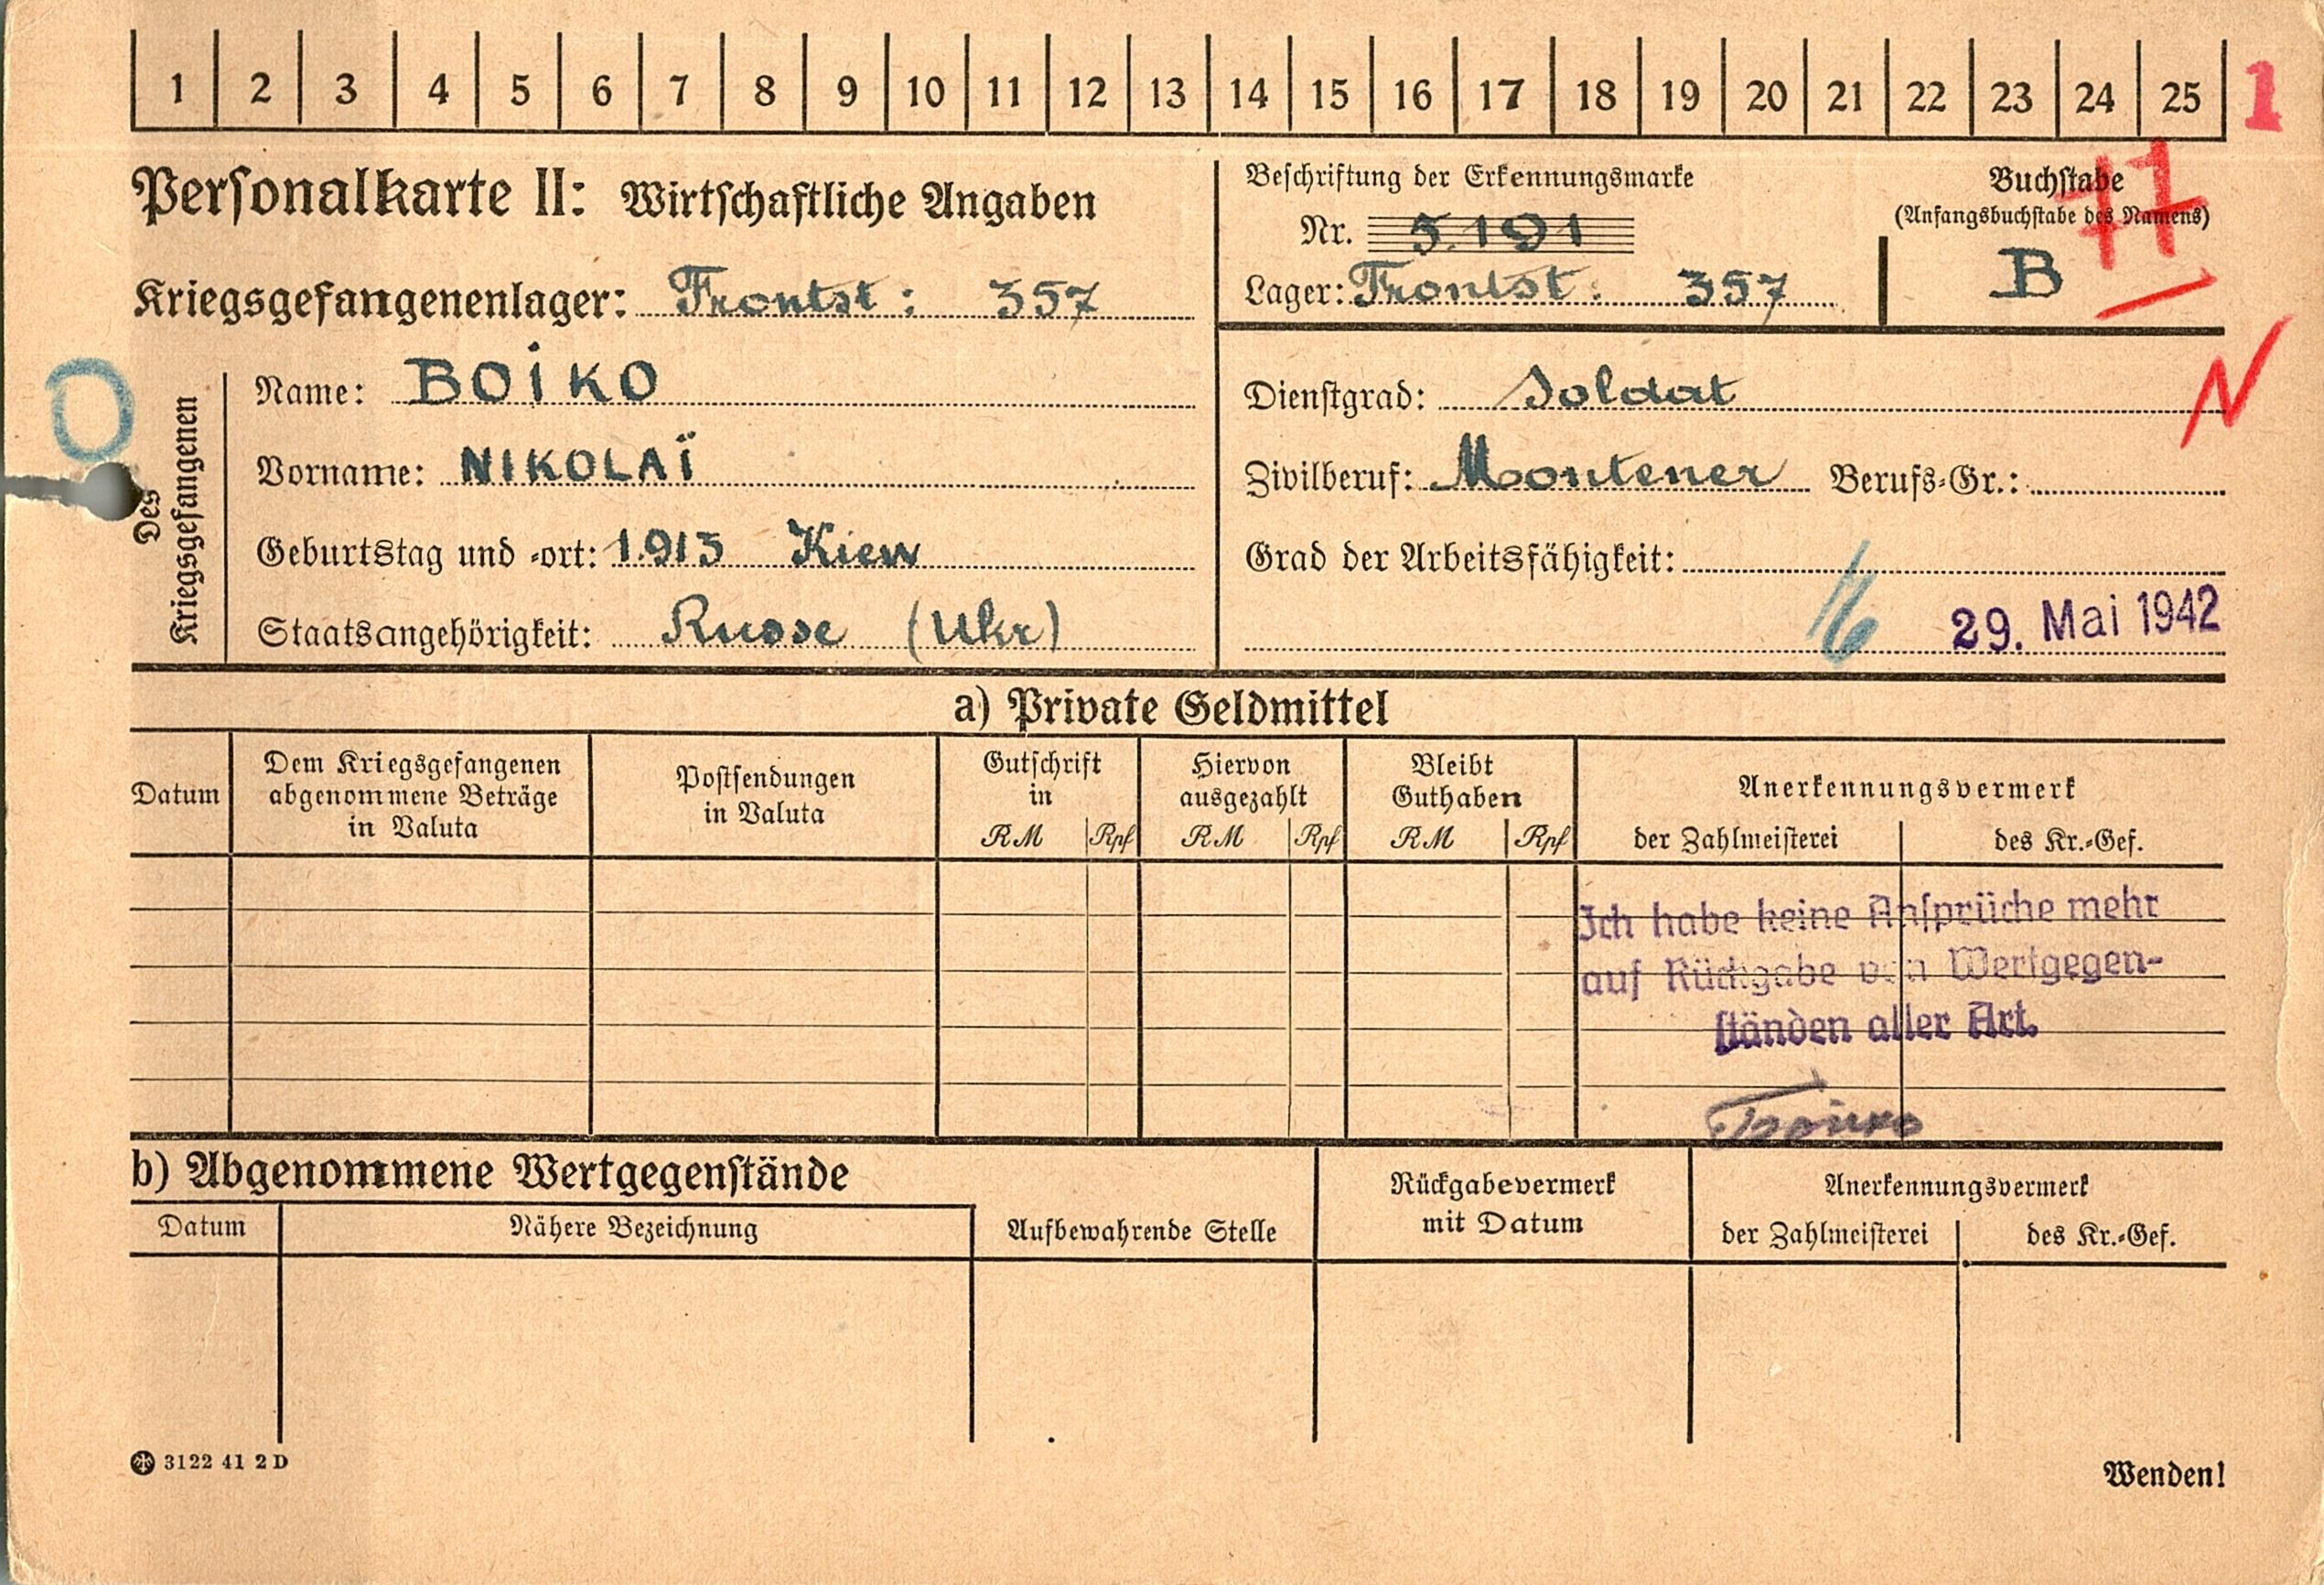 1 2 3 4 5 6 7 8 9 10 11 12 13 14 15 16 17 18 19 20 21 22 23 24 25 1
Personalkarte II: Wirtschaftliche Angaben
Kriegsgefangenenlager: Frontst: 357
Beschriftung der Erkennungsmarke
Nr. 5.191
Lager: Frontst. 357
Buchstabe
(Anfangsbuchstabe des Namens)
77
B
N
O
Des
Kriegsgefangenen
Name: BOİKO
Vorname: NIKOLAÏ
Geburtstag und -ort: 1.913 Kiew
Staatsangehörigkeit: Russe (Ukr)
Dienstgrad: Soldat
Zivilberuf: Montener Berufs-Gr.:
Grad der Arbeitsfähigkeit:
29. Mai 1942
a) Private Geldmittel
Datum
Dem Kriegsgefangenen
abgenommene Beträge
in Valuta
Postsendungen
in Valuta
Gutschrift
in
RM Rpf
Hiervon
ausgezahlt
RM Rpf
Bleibt
Guthaben
RM Rpf
Anerkennungsvermerk
der Zahlmeisterei des Kr.-Gef.
Ich habe keine Ansprüche mehr
auf Rückgabe von Wertgegen-
ständen aller Art.
b) Abgenommene Wertgegenstände
Datum Nähere Bezeichnung
Aufbewahrende Stelle
Rückgabevermerk
mit Datum
Anerkennungsvermerk
der Zahlmeisterei des Kr.-Gef.
3122 41 2 D
Wenden!